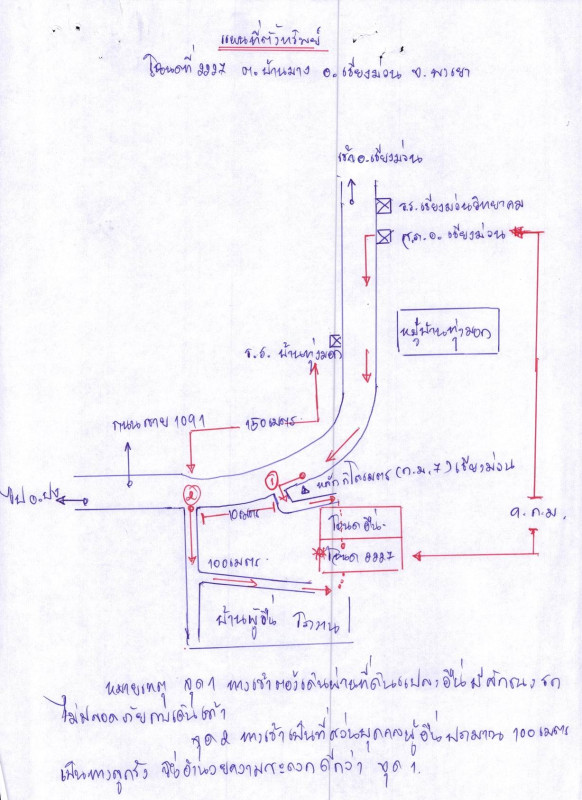 แผนที่ตัวทรัพย์
โฉนดที่ 2227 ต. บ้านมาง อ. เชียงม่วน จ. พะเยา
เข้า อ. เชียงม่วน
ร.ร. เชียงม่วนวิทยาคม
ส.ภ.อ. เชียงม่วน
หมู่บ้านทุ่งมอก
ร.ร. บ้านทุ่งมอก
ถนนสาย 1091
150 เมตร
ไป อ. ปง
1
หลักกิโลเมตร (ก.ม. 7) เชียงม่วน
2
10 เมตร
9 ก.ม.
โฉนดอื่น
โฉนด 2227
100 เมตร
บ้านผู้อื่น
หมายเหตุ จุด 1 ทางเข้าต้องเดินผ่านที่ดินแปลงอื่น มีลักษณะรก
ไม่ปลอดภัย
จุด 2 ทางเข้าเป็นที่ส่วนบุคคลผู้อื่น ประมาณ 100 เมตร
เป็นทางลูกรัง ซึ่งอำนวยความสะดวกดีกว่า จุด 1.